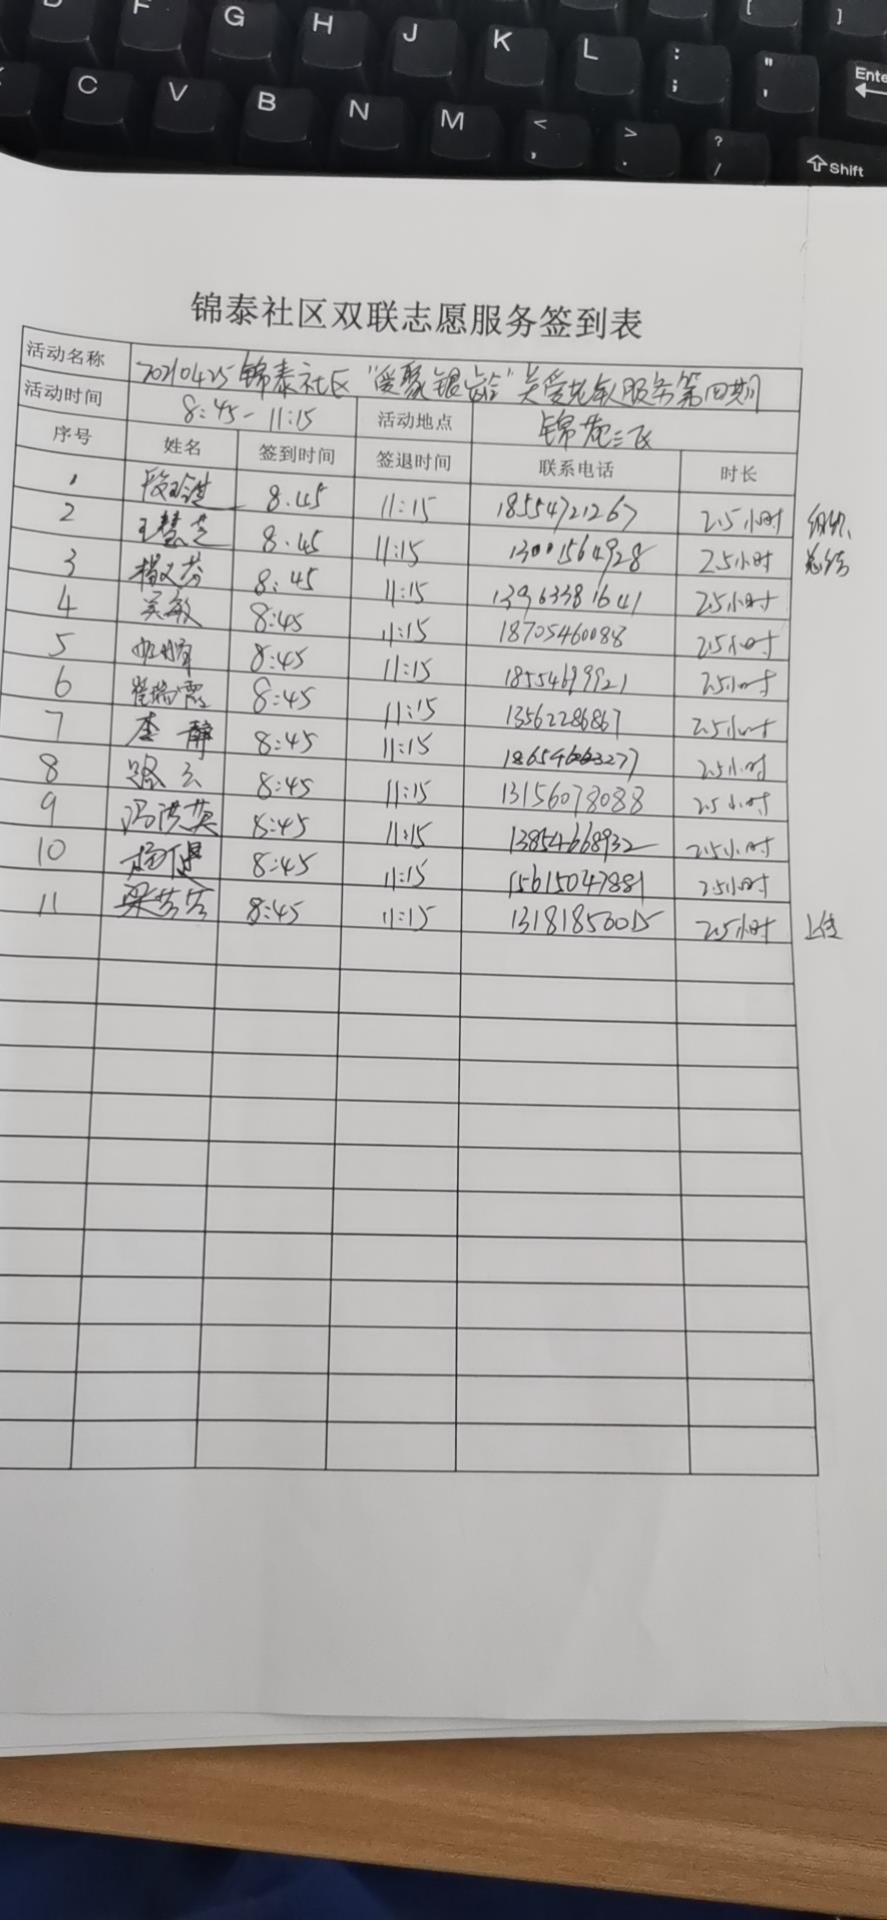 D F G H J K L : ; " ' [ ] Enter
C V B N M < , > . ? / Shift
锦泰社区双联志愿服务签到表
活动名称 20210425锦泰社区"爱聚银龄"关爱老年人服务第四期
活动时间 8:45-11:15 活动地点 锦苑三区
序号 姓名 签到时间 签退时间 联系电话 时长
1 8:45 11:15 18554721267 2.5小时 组织、
2 王慧芝 8:45 11:15 13001564928 2.5小时 总结
3 杨文芬 8:45 11:15 13963381641 2.5小时
4 吴敏 8:45 11:15 18705460088 2.5小时
5 8:45 11:15 18554699921 2.5小时
6 崔瑞霞 8:45 11:15 13562286867 2.5小时
7 李静 8:45 11:15 18654663277 2.5小时
8 路云 8:45 11:15 13156078088 2.5小时
9 冯洪英 8:45 11:15 13854668932 2.5小时
10 杨健 8:45 11:15 15615047881 2.5小时
11 梁芳芳 8:45 11:15 13181850015 2.5小时 上传